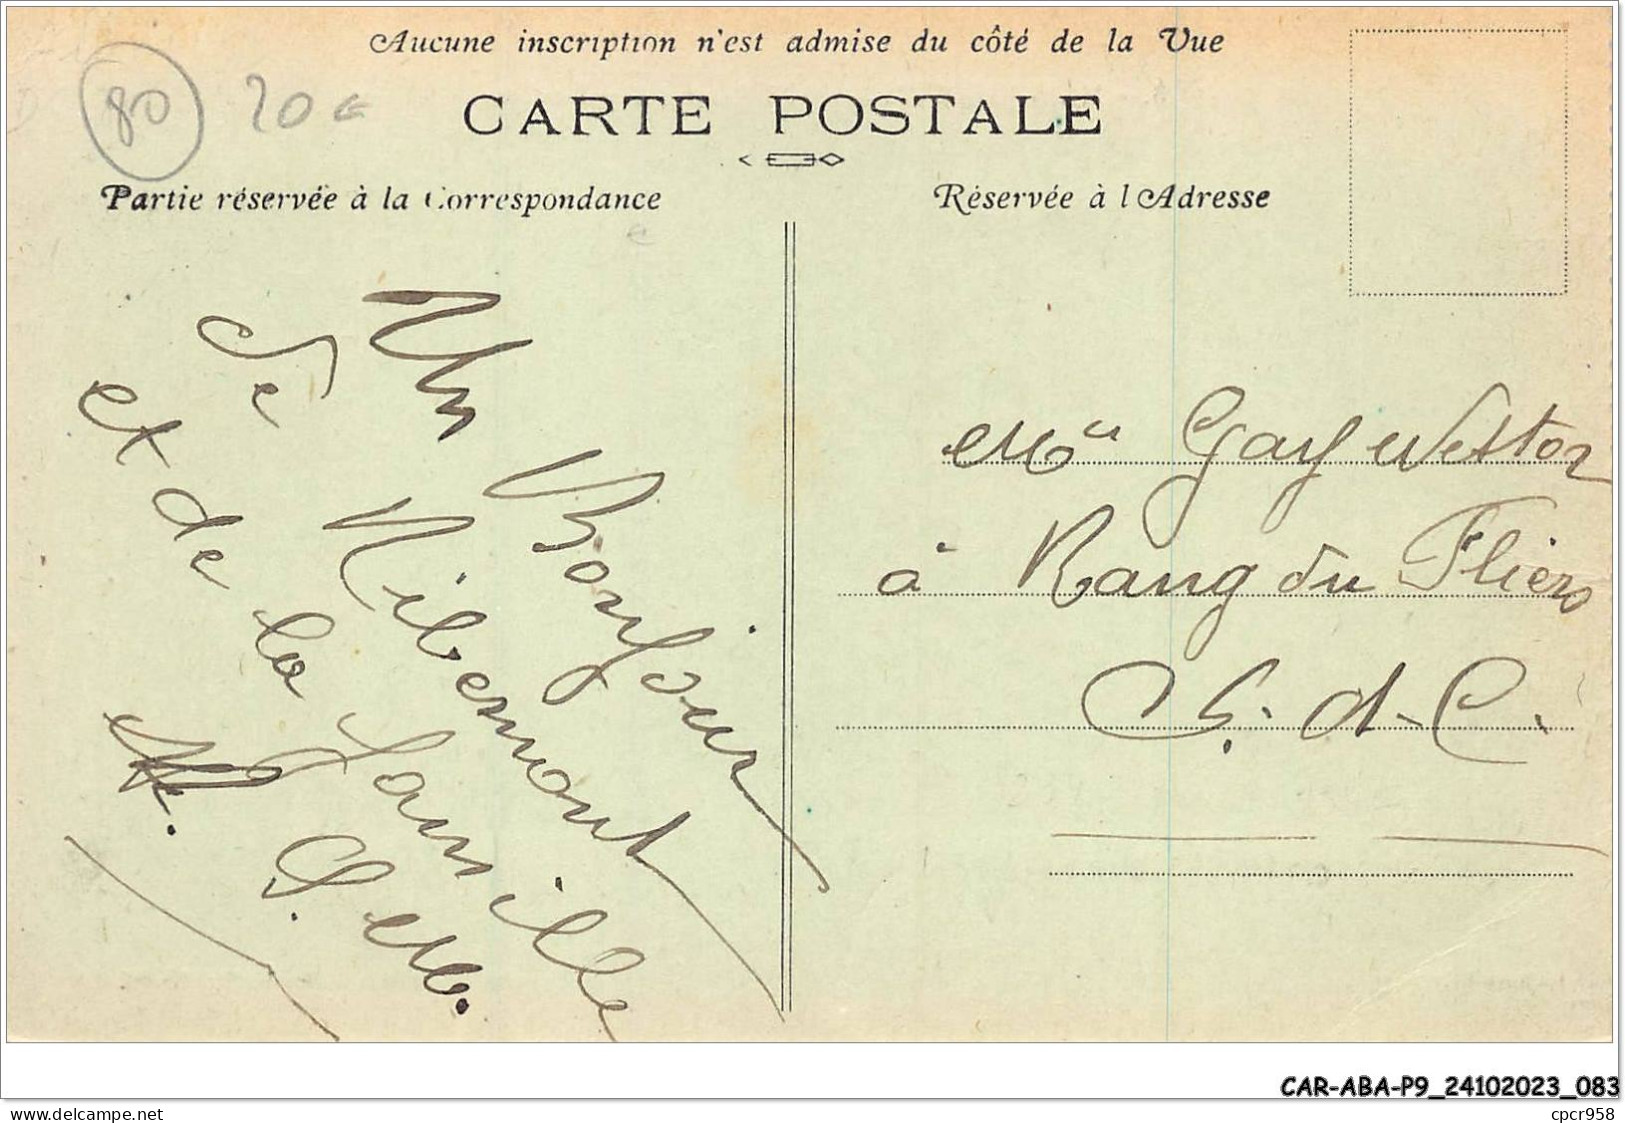 Aucune inscription n'est admise du côté de la Vue
80 20 €
CARTE POSTALE
Partie réservée à la Correspondance
Réservée à l'Adresse
Un Bonjour
De Ribemont
et de la famille
S. M.
à Rang du Fliers
P. d. C.
CAR-ABA-P9_24102023_083
cpcr958
https://www.delcampe.net